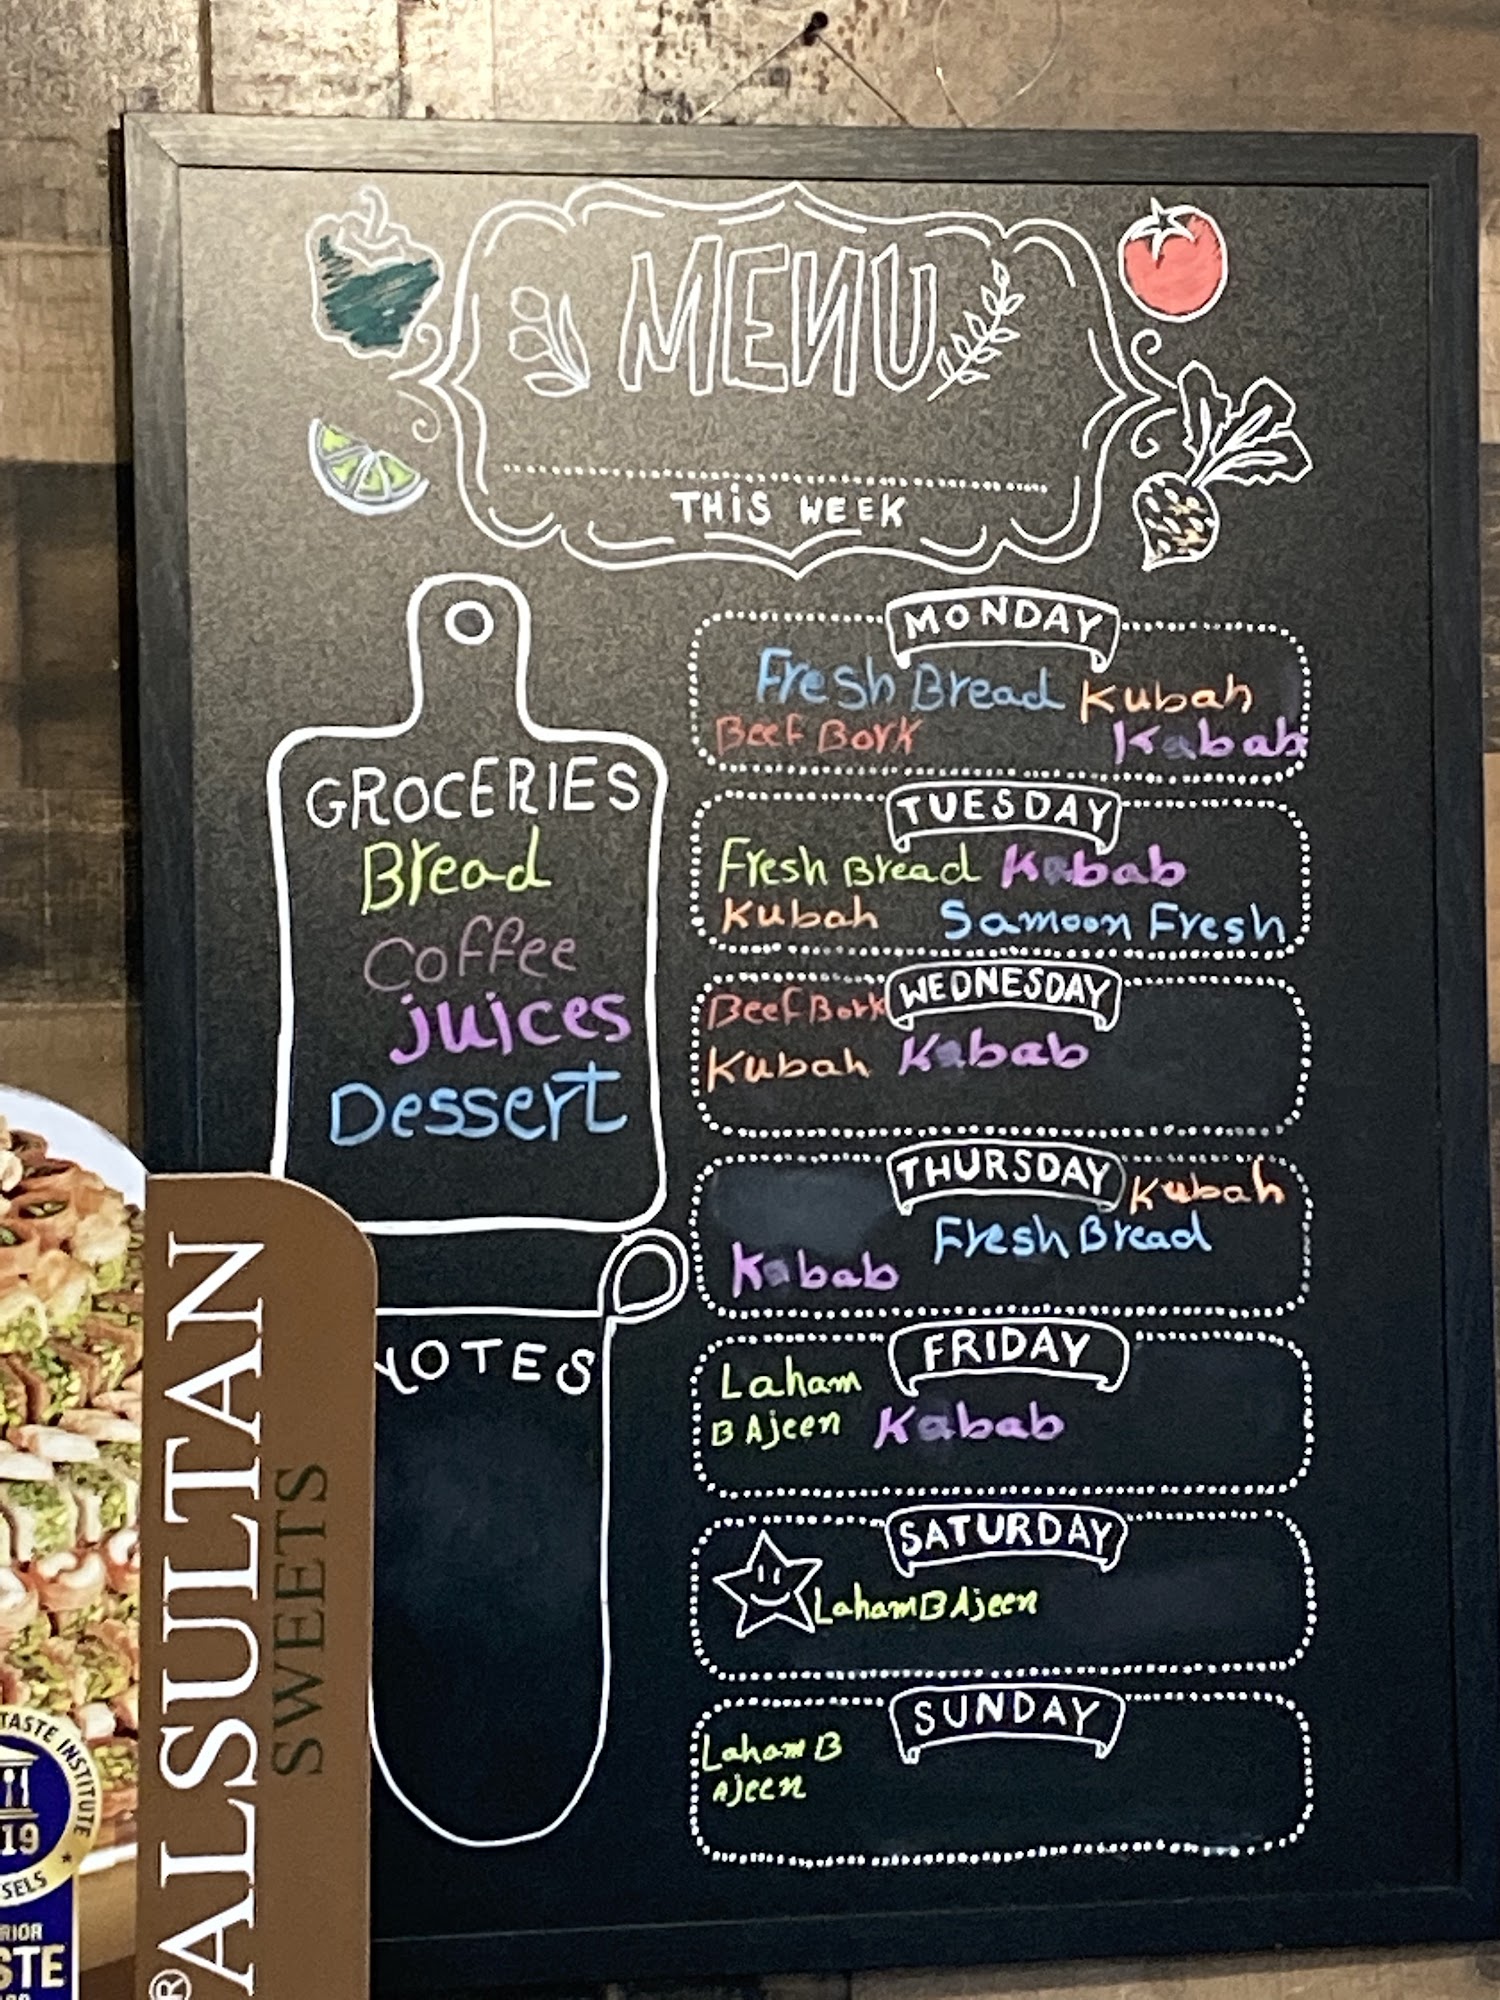 MENU
THIS WEEK
GROCERIES
Bread
Coffee
juices
Dessert
NOTES
MONDAY
Fresh Bread Kubah
Beef Bork Kabab
TUESDAY
Fresh Bread Kabab
Kubah Samoon Fresh
WEDNESDAY
Beef Bork
Kubah Kabab
THURSDAY
Kubah
Fresh Bread
Kabab
FRIDAY
Laham
B Ajeen Kabab
SATURDAY
Laham B Ajeen
SUNDAY
Laham B
Ajeen
ALSULTAN
SWEETS
®
TASTE INSTITUTE
19
SELS
RIOR
STE